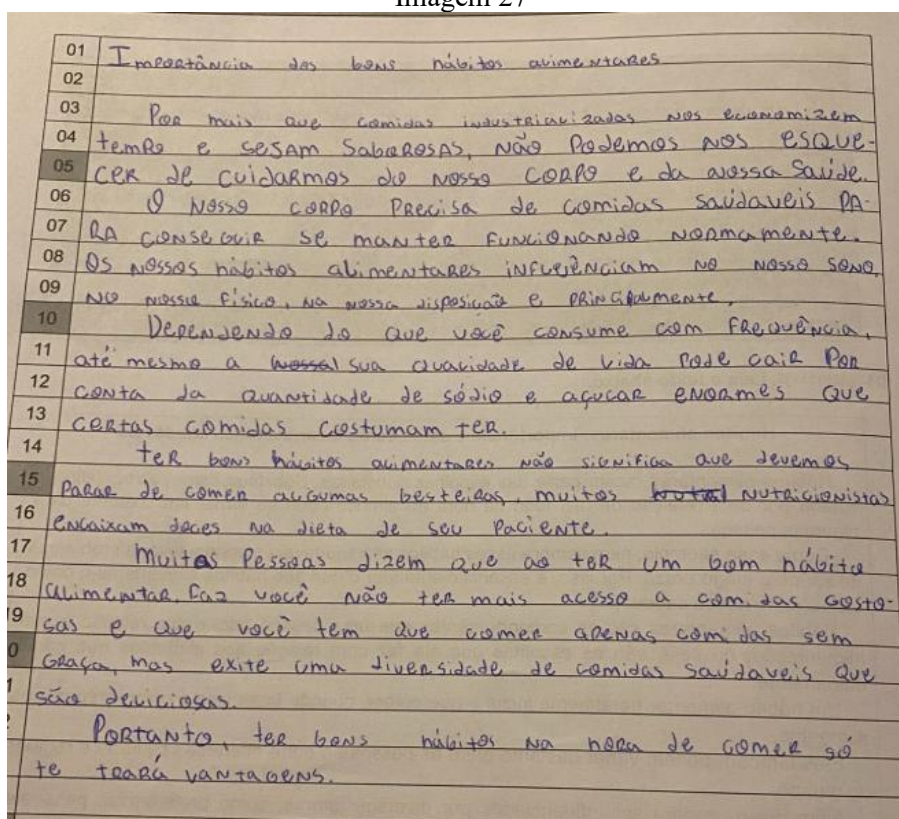 Imagem 27
01 Importância dos bons hábitos alimentares
02
03 Por mais que comidas industrializadas nos economizem
04 tempo e sejam saborosas, não podemos nos esque-
05 cer de cuidarmos do nosso corpo e da nossa saúde.
06 O nosso corpo precisa de comidas saúdaveis pa-
07 ra conseguir se manter funcionando normamente.
08 Os nossos hábitos alimentares influênciam no nosso sono,
09 no nosso físico, na nossa disposição e principalmente,
10 Dependendo do que você consume com frequência,
11 até mesmo a sua qualidade de vida pode cair por
12 conta da quantidade de sódio e açucar enormes que
13 certas comidas costumam ter.
14 ter bons hábitos alimentares não significa que devemos
15 parar de comer algumas besteiras, muitos nutricionistas
16 encaixam doces na dieta de seu paciente.
17 Muitas pessoas dizem que ao ter um bom hábito
18 alimentar, faz você não ter mais acesso a comidas gosto-
9 sas e que você tem que comer apenas comidas sem
0 graça, mas exite uma diversidade de comidas saúdaveis que
1 são deliciosas.
Portanto, ter bons hábitos na hora de comer só
te trará vantagens.